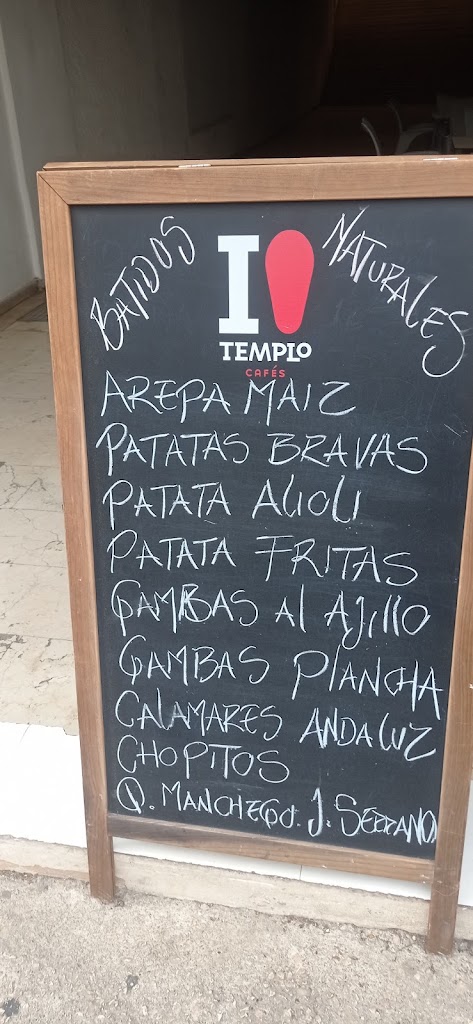 BATIDOS NATURALES
I
TEMPLO
CAFÉS
AREPA MAIZ
PATATAS BRAVAS
PATATA ALIOLI
PATATA FRITAS
GAMBAS Al AJillO
GAMBAS PlANCHA
CALAMARES ANDALUZ
CHOPITOS
Q. MANCHEGO. J. SERRANO